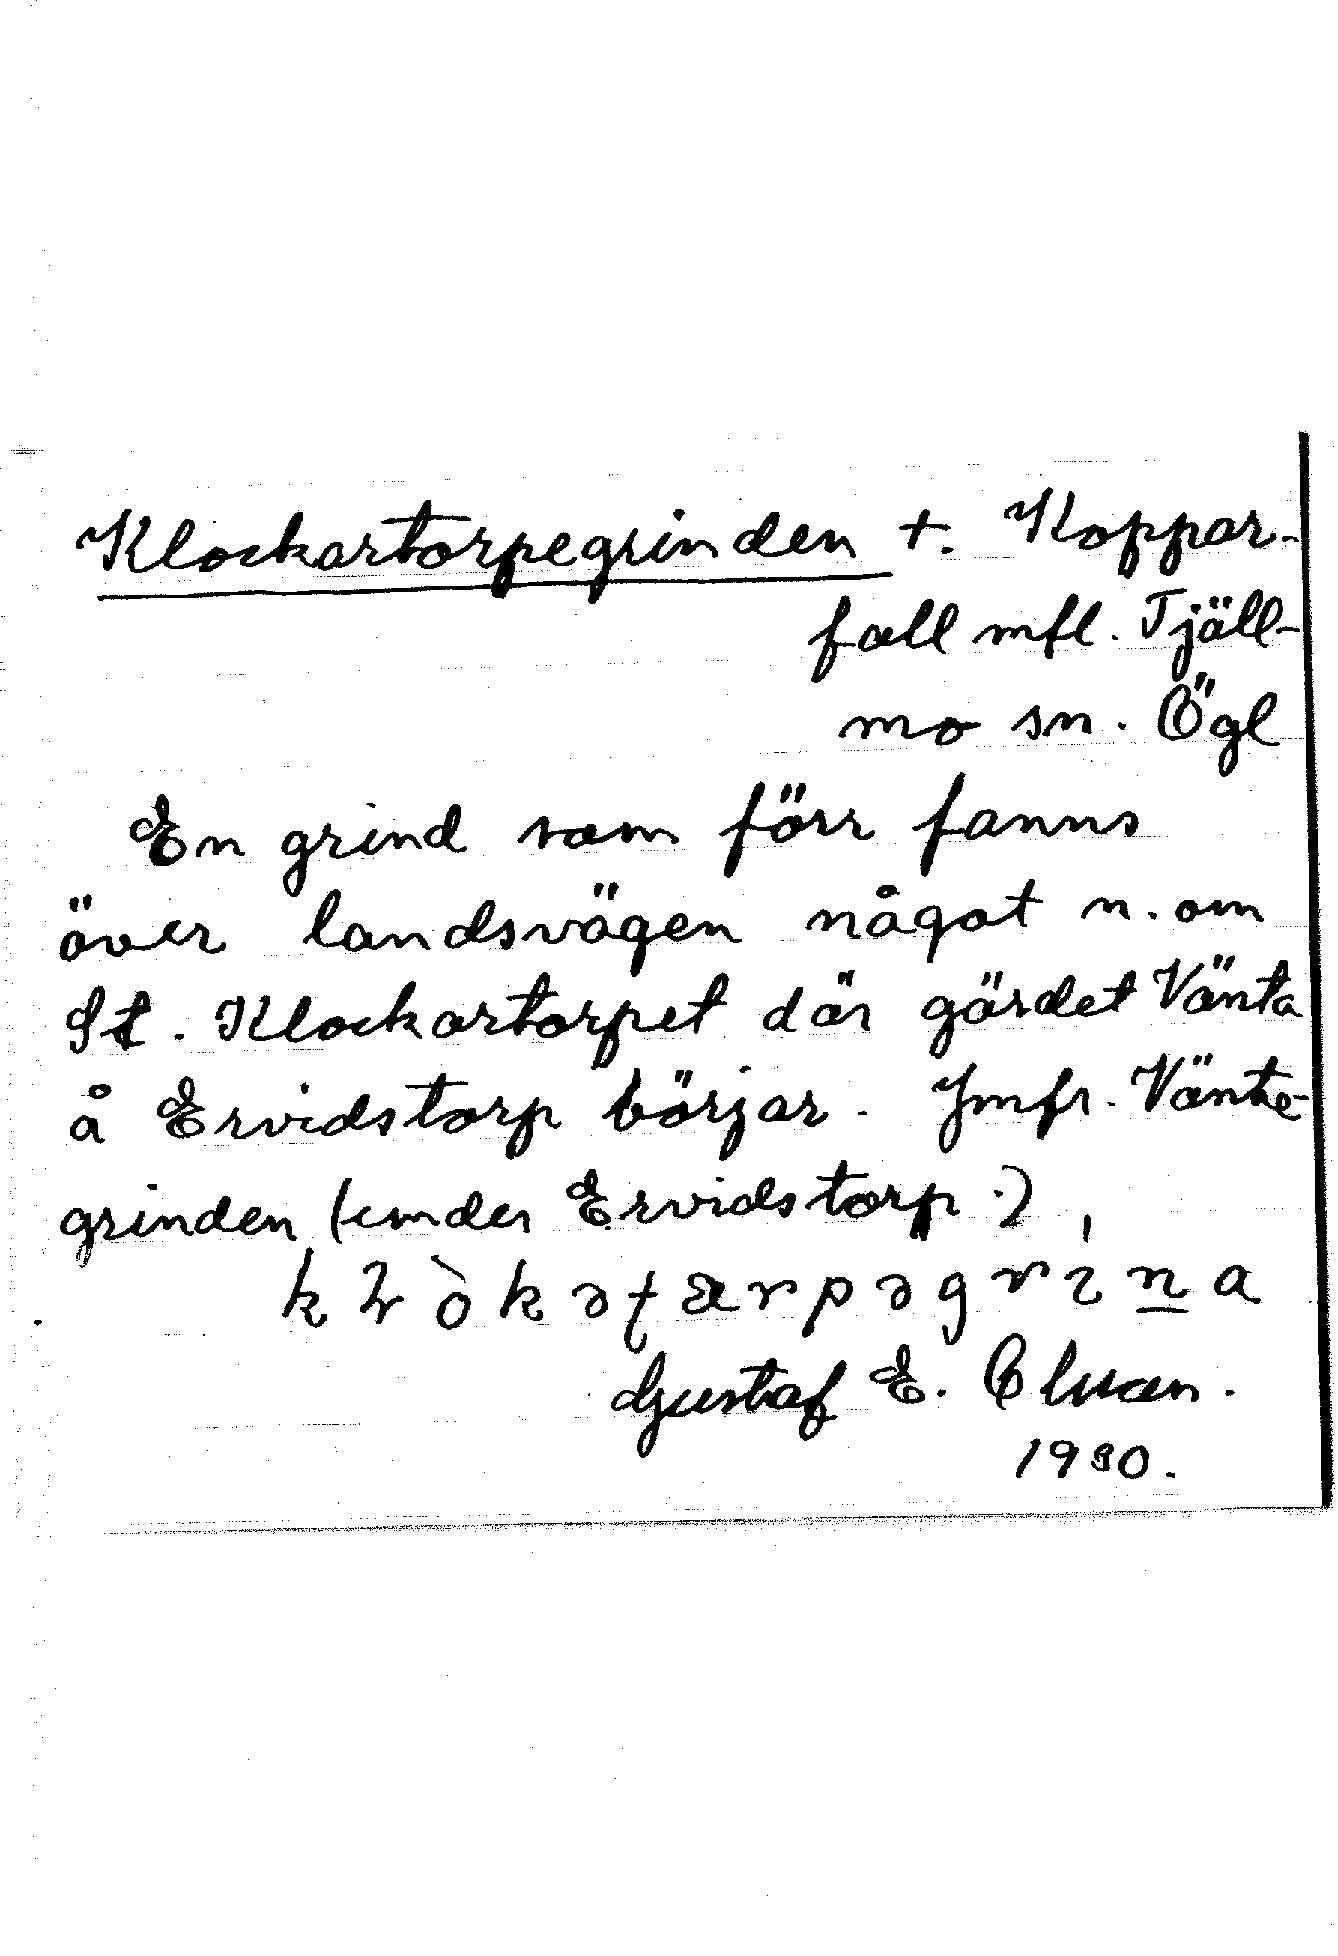 Klockartorpegrinden +. Koppar-
fall mfl. Tjäll-
mo sn. Ögl
En grind som förr fanns
över landsvägen något n. om
St. Klockartorpet där gärdet Vänta
å Ervidstorp börjar. Jmfr. Vänte-
grinden (under Ervidstorp.)
Gustaf E.